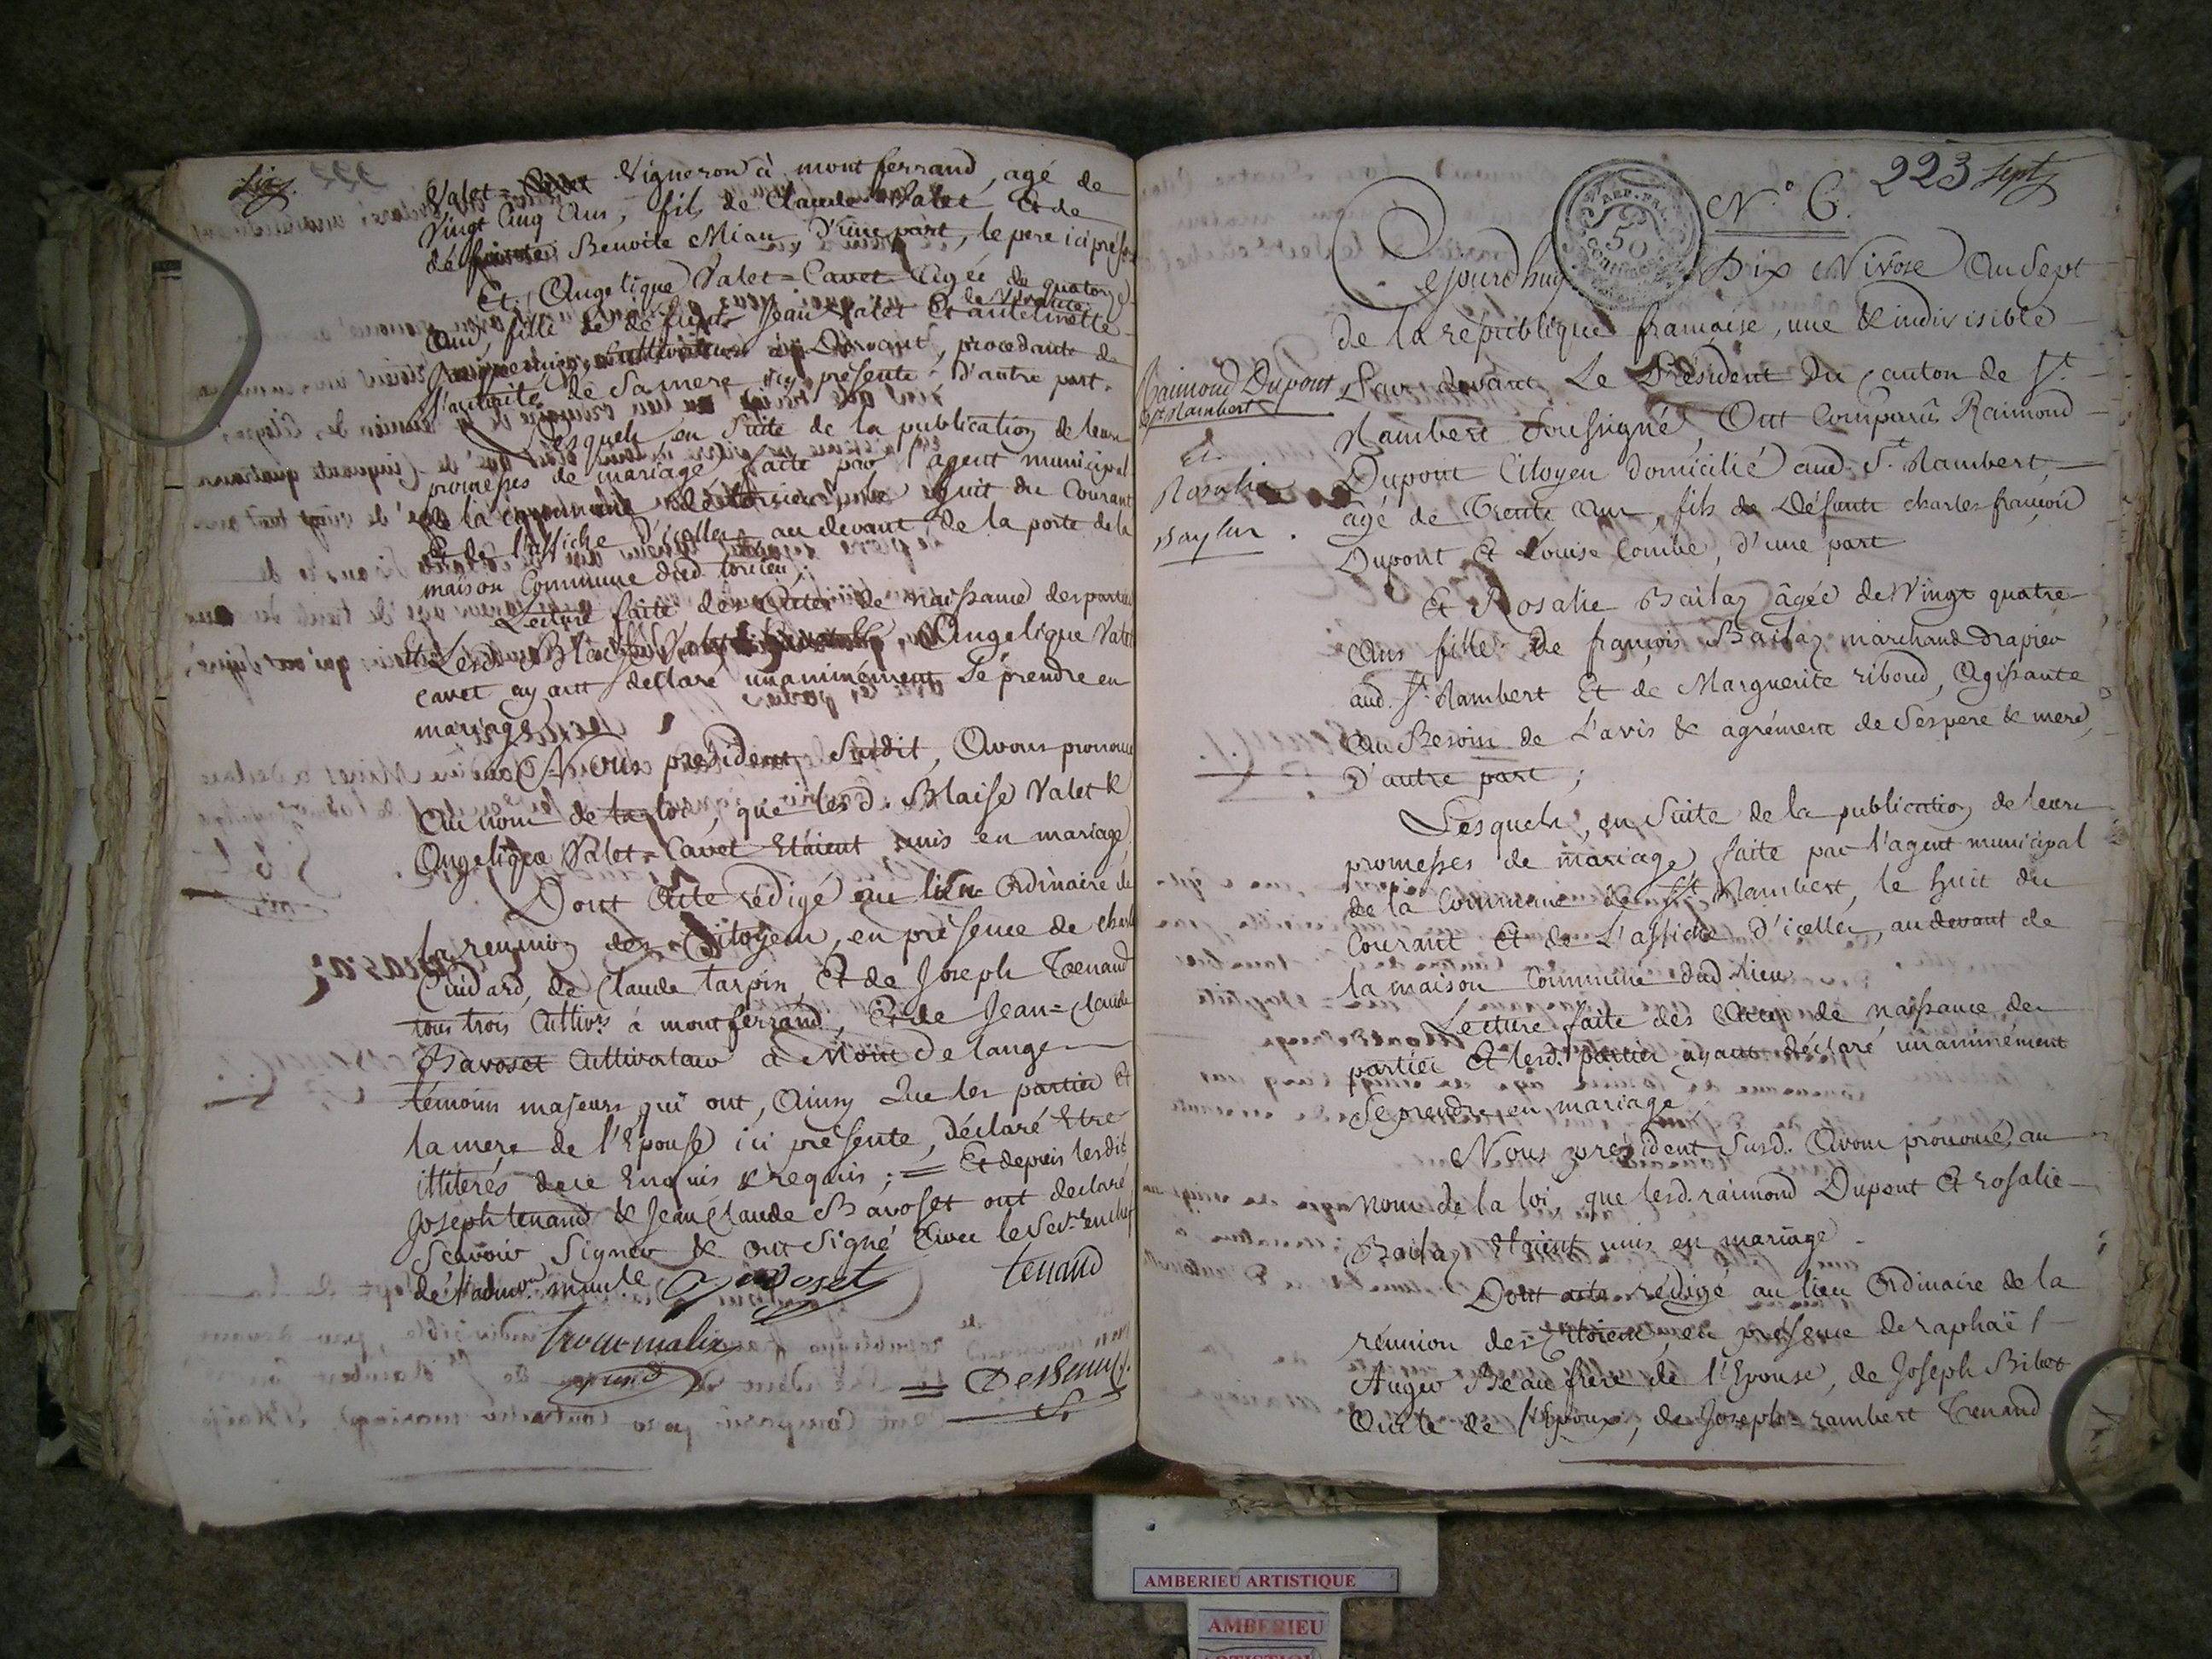 Six.
Valet = Vigneron à montferrand, agé de
Vingt Cinq Ans, fils de Claude Valet Et de
défunte Benoite Mian, D'une part, le pere ici présen
Et Angelique Valet = Cavet Agée de quatorze
Ans, fille de défunt Jean Valet Et antelmette
de vivante
Dorvant, procedante de
l'autorité de Sa mere icy présente - D'autre part.
Lesquels, en Suite de la publication de leurs
promesses de mariage faite par l'agent municipal
de la commune de torcieu, le huit du Courant
Et de l'affiche d'icelles au devant de la porte de la
maison Commune dud. torcieu;
Lecture faite des Actes de naissance des parties
Et Lesd. Blaise Valet Angelique Valet
cavet ayant déclaré unanimément Sé prendre en
mariage
Nous président Susdit, Avons prononcé
Au nom de la loi, que lesd. Blaise Valet &
Angelique Valet = Cavet Etaient unis en mariage
Dont Acte rédigé au lieu Ordinaire de
la reunion des Citoyens, en présence de charles
Cuidard, de Claude tarpin, Et de Joseph Tenand
tous trois Cultiv.rs à montferrand, Et de Jean = Claude
Bavoset Cultivateur à Mont de lange
témoins majeurs qui ont, Ainsy Que les parties Et
la mere de l'Epouse ici présente, Déclaré Etre
illitérés de ce Enquis & requis; = Et depuis lesdits
Joseph tenand & Jean Claude Bavoset ont declaré
Scavoir Signer & ont Signé Avec le Secr. en chef
de l'adm.on munle
Bavoset
tenand
223 Sept
N.° 6.
REP. FRA.
50
CENTIMES
Cejourd'huy Dix Nivose An Sept
de la république française, une & indivisible
Raimond Dupont
de St Rambert
Et.
Rosalie
Baylas.
Par devant Le Président du canton de St.
Rambert Soussigné, Ont Comparû Raimond
Dupont Citoyen domicilié aud. St. Rambert
agé de Trente Ans, fils de Défunts charles françois
Dupont Et Louise Combe, d'une part
Et Rosalie Bailaz âgée de Vingt quatre
Ans fille de françois Bailaz marchand drapier
aud. St. Rambert Et de Marguerite riboud, Agissante
Au Besoin de L'avis & agrément de Ses pere & mere,
D'autre part;
Lesquels, en Suite de la publication de leurs
promesses de mariage, faite par l'agent municipal
de la Commune de St. Rambert, le huit du
Courant Et de L'affiche d'icelles, au devant de
la maison Commune dud. lieu
Lecture faite des Actes de naissance des
parties Et lesd. parties ayant déclaré unanimément
Se prendre en mariage,
Nous président Susd. Avons prononcé, au
Nom de la loi, que lesd. raimond Dupont Et rosalie
Bailaz Etaient unis en mariage.
Dont acte rédigé au lieu Ordinaire de la
réunion des Citoiens, en présence de raphaël
Auger Beaufrere de l'Epouse, de Joseph Bibet
Oncle de l'Epoux, de Joseph = rambert Tenand
AMBERIEU ARTISTIQUE
AMBERIEU
ARTISTIQUE